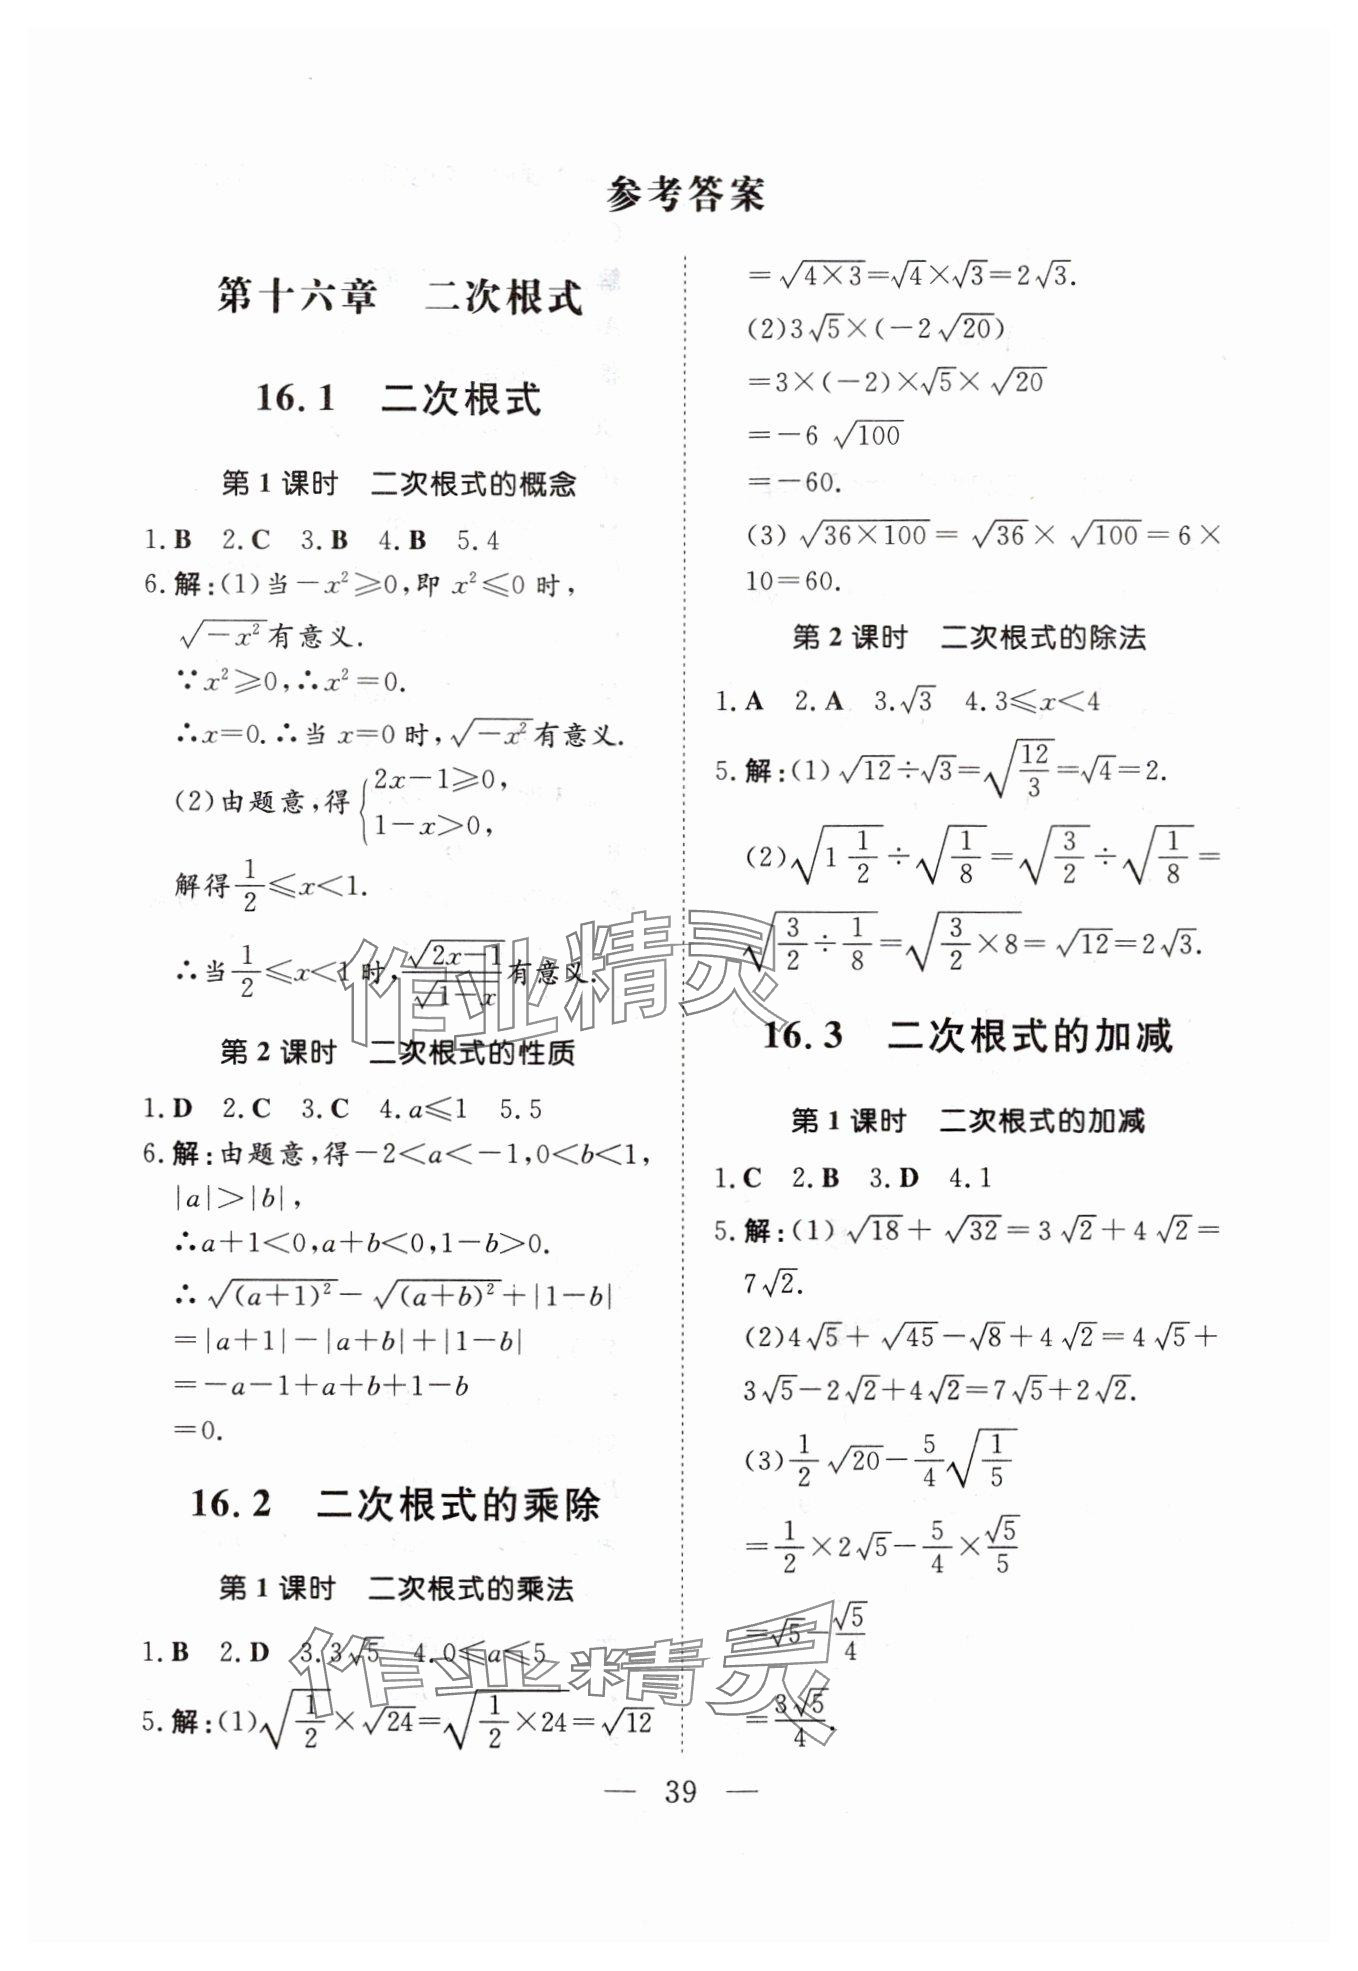 参考答案
第十六章 二次根式
16.1 二次根式
第1课时 二次根式的概念
1.B 2.C 3.B 4.B 5.4
6.解:(1)当-x²≥0,即 x²≤0 时,
√(-x²)有意义.
∵x²≥0,∴x²=0.
∴x=0.∴当 x=0 时,√(-x²)有意义.
(2)由题意,得{2x-1≥0,
1-x>0,
解得1/2≤x<1.
∴当1/2≤x<1时,√(2x-1)/√(1-x)有意义.
第2课时 二次根式的性质
1.D 2.C 3.C 4.a≤1 5.5
6.解:由题意,得-2<a<-1,0<b<1,
|a|>|b|,
∴a+1<0,a+b<0,1-b>0.
∴√((a+1)²)-√((a+b)²)+|1-b|
=|a+1|-|a+b|+|1-b|
=-a-1+a+b+1-b
=0.
16.2 二次根式的乘除
第1课时 二次根式的乘法
1.B 2.D 3.3√5 4.0≤a≤5
5.解:(1)√(1/2)×√24=√(1/2×24)=√12
=√(4×3)=√4×√3=2√3.
(2)3√5×(-2√20)
=3×(-2)×√5×√20
=-6√100
=-60.
(3)√(36×100)=√36×√100=6×
10=60.
第2课时 二次根式的除法
1.A 2.A 3.√3 4.3≤x<4
5.解:(1)√12÷√3=√(12/3)=√4=2.
(2)√(1 1/2)÷√(1/8)=√(3/2)÷√(1/8)=
√(3/2÷1/8)=√(3/2×8)=√12=2√3.
16.3 二次根式的加减
第1课时 二次根式的加减
1.C 2.B 3.D 4.1
5.解:(1)√18+√32=3√2+4√2=
7√2.
(2)4√5+√45-√8+4√2=4√5+
3√5-2√2+4√2=7√5+2√2.
(3)1/2√20-5/4√(1/5)
=1/2×2√5-5/4×√5/5
=√5-√5/4
=3√5/4.
— 39 —
作业精灵
作业精灵